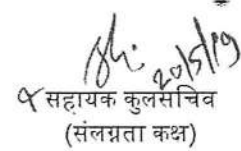 20/5/19
सहायक कुलसचिव
(संलग्नता कक्ष)